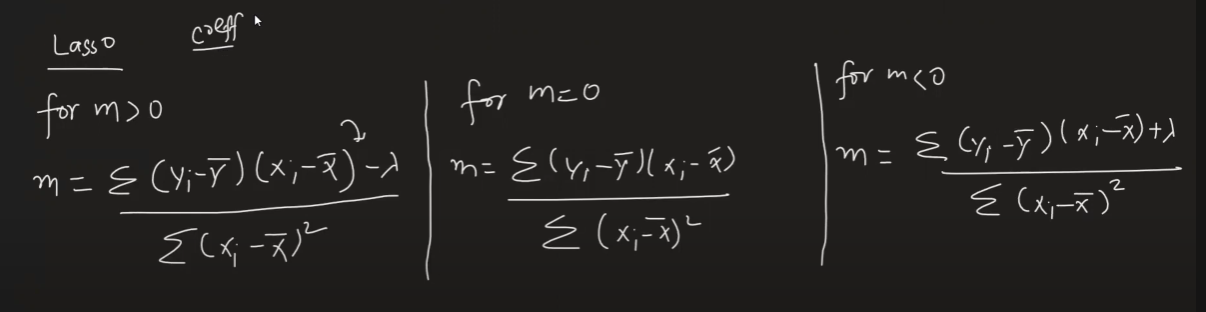 Lasso coeff
for m>0
m = Σ (yᵢ-ȳ)(xᵢ-x̄) - λ
Σ(xᵢ-x̄)²
for m=0
m= Σ(yᵢ-ȳ)(xᵢ-x̄)
Σ (xᵢ-x̄)²
for m<0
m = Σ (yᵢ-ȳ)(xᵢ-x̄)+λ
Σ (xᵢ-x̄)²